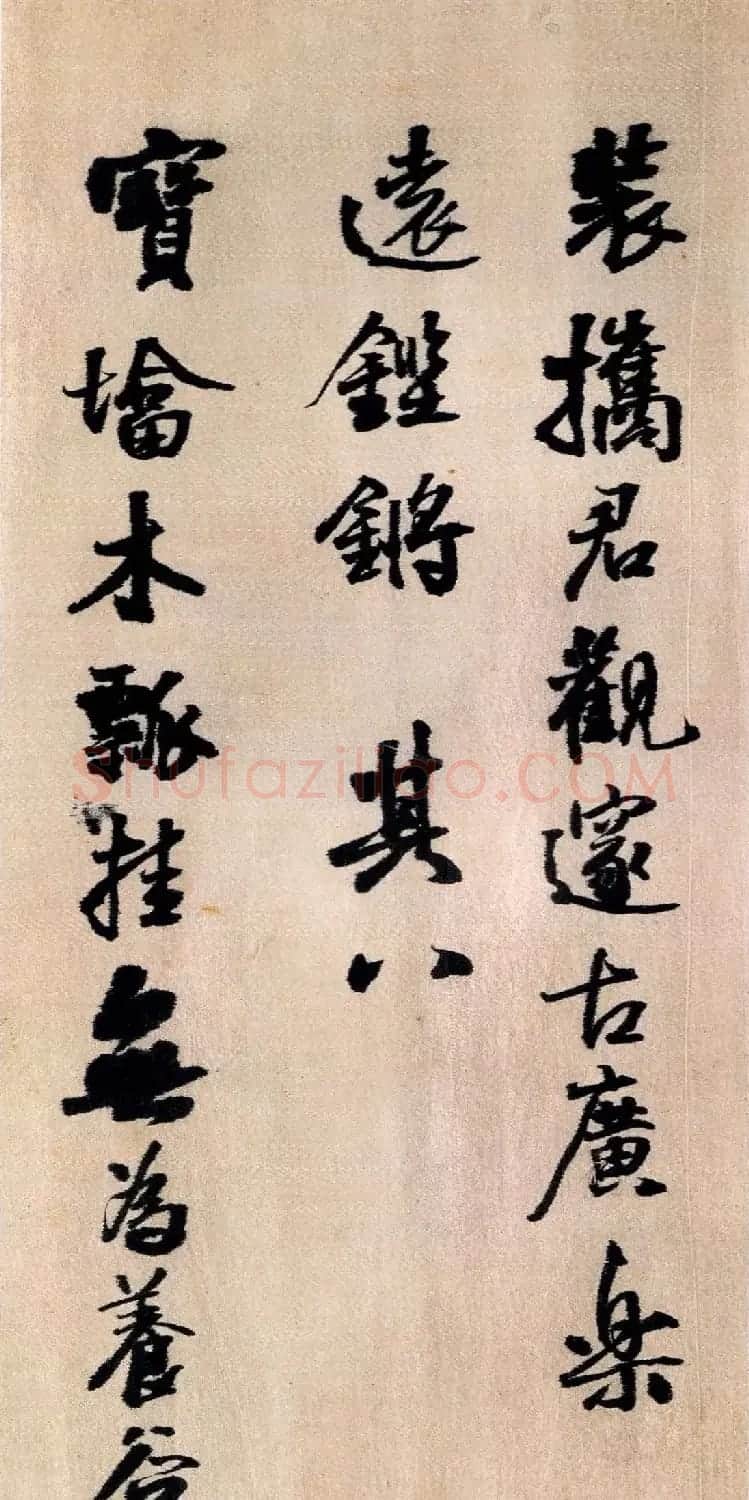 裝攜君觀邃古廣樂
遠鏗鏘 其八
寶墖木瓢挂無為養谷
shufaziliao.COM